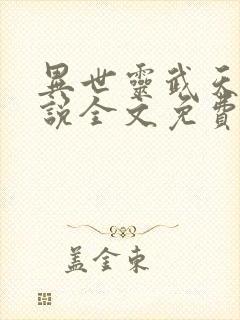 異世靈武天
說全文免費
蓋金東